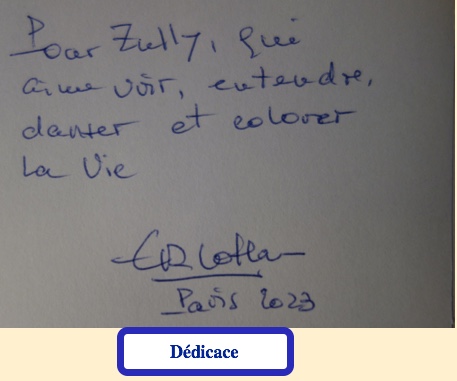 Pour Zully, qui
aime voir, entendre,
danser et colorer
la Vie
Paris 2023
Dédicace